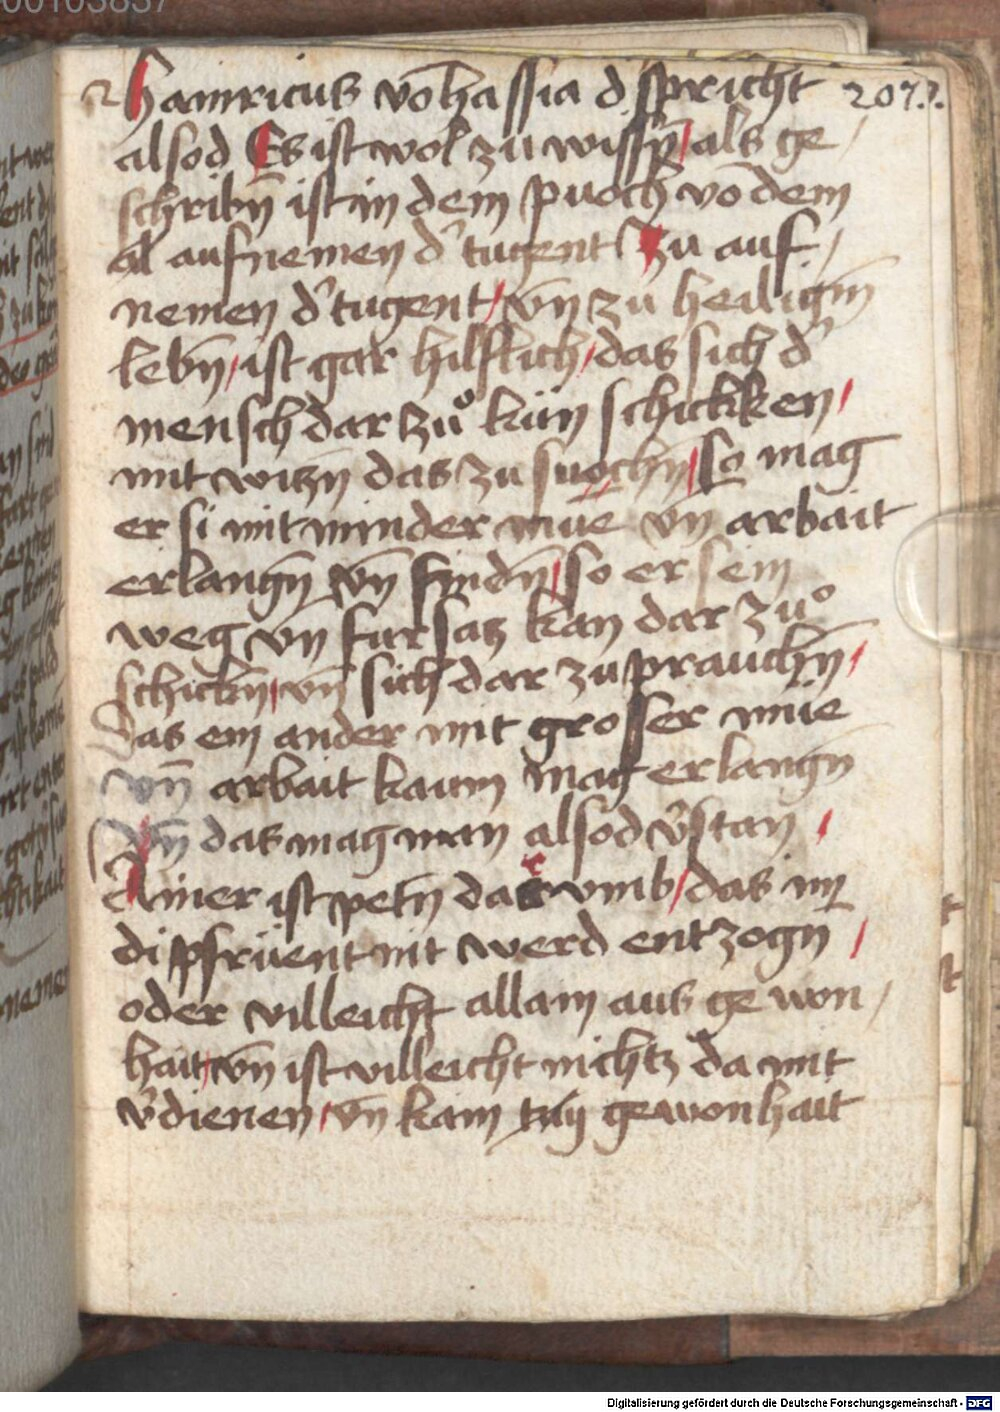 00103837
hainricus vō hassia d spricht 207.
alsod Es ist wol zu wissn̄ / als ge /
schribn̄ ist in dem puoch vō dem
aufnemen d' tugent Zu auf /
nemen d' tugent / vn̄ zu heiligm̄
lebn̄ / ist gar hilflich / das sich d'
mensch dar zuͦ kün schickken /
mit wizn̄ das zu suochn̄ / so mag
er si mit minder müe vn̄ arbait
erlangn̄ vn̄ findn̄ / so er sein
weg vn̄ fürsatz kan dar zuͦ
schickn̄ / vn̄ sich dar zu prauchn̄ /
das ein ander mit grosser müe
vn̄ arbait kaum mag erlangn̄
Vn̄ das mag man alsod v'stan /
Ainer ist petn̄ dar vmb / das im
di pfrüent nit werd entzogn̄ /
oder villeicht allain aus ge won /
hait / vn̄ ist villeicht nichtz da mit
v'dienen / vn̄ kain gewonhait
Digitalisierung gefördert durch die Deutsche Forschungsgemeinschaft - DFG